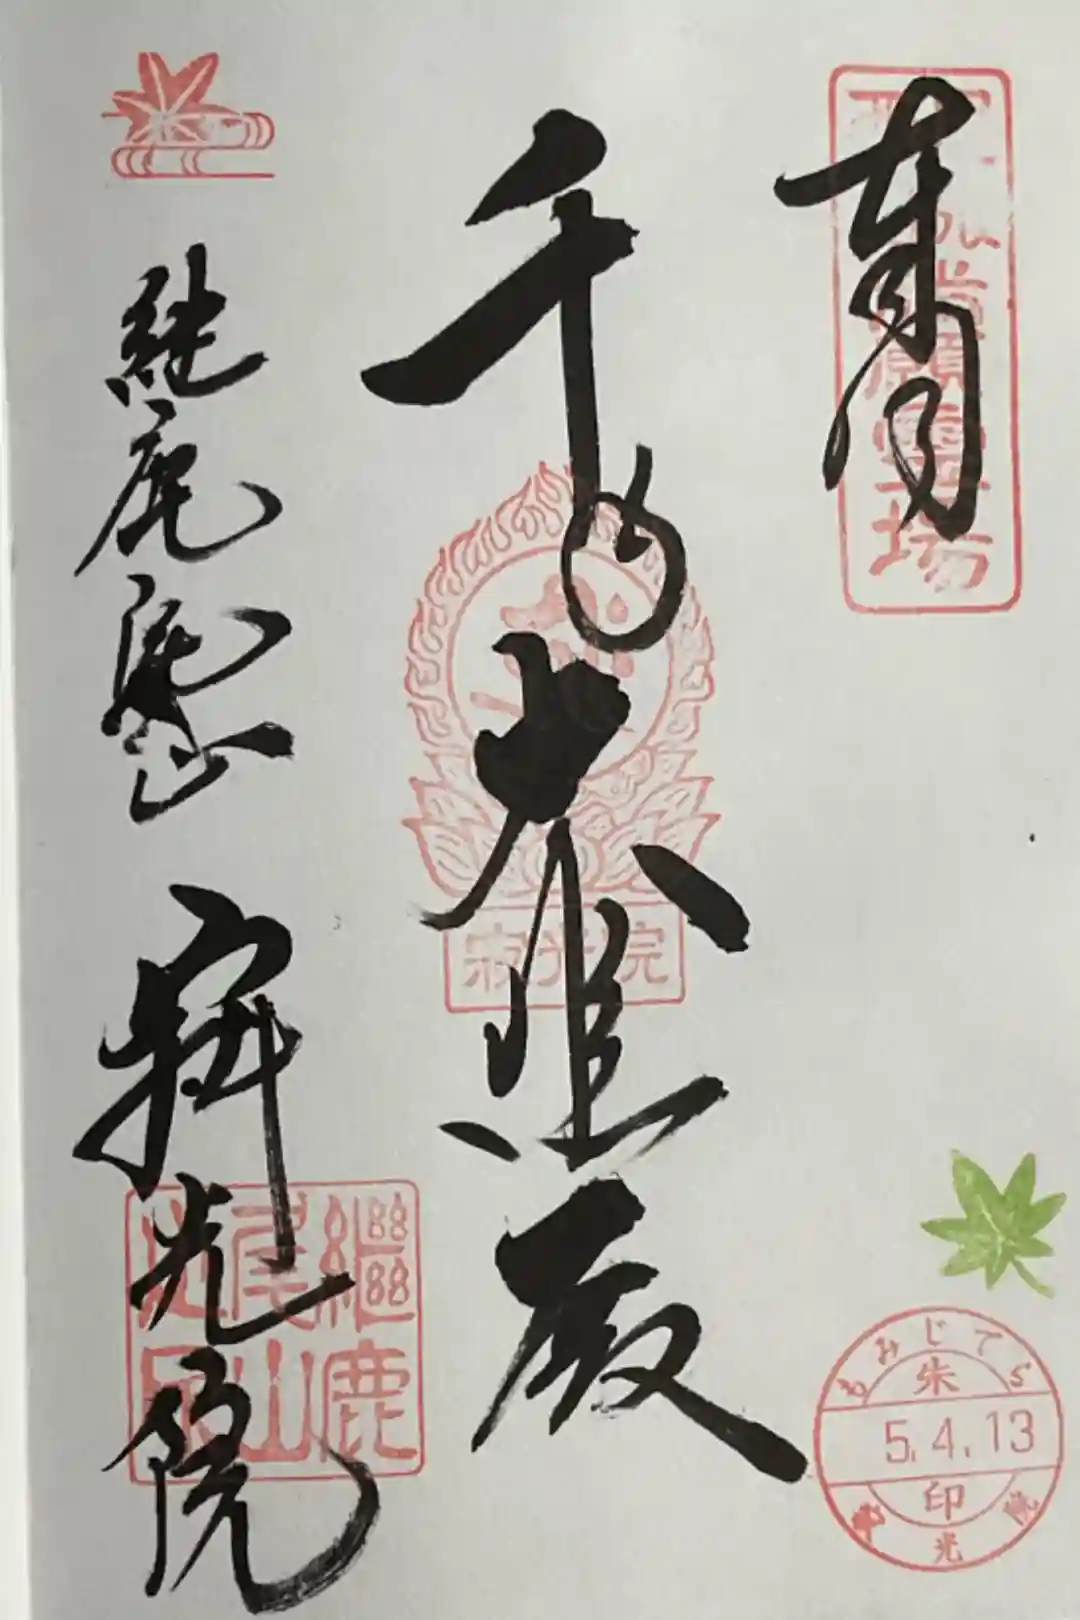 奉拝
千手大悲殿
継鹿尾山 寂光院
願霊場
寂光院
継鹿
尾山
もみじでら
朱
5.4.13
印
寂光院